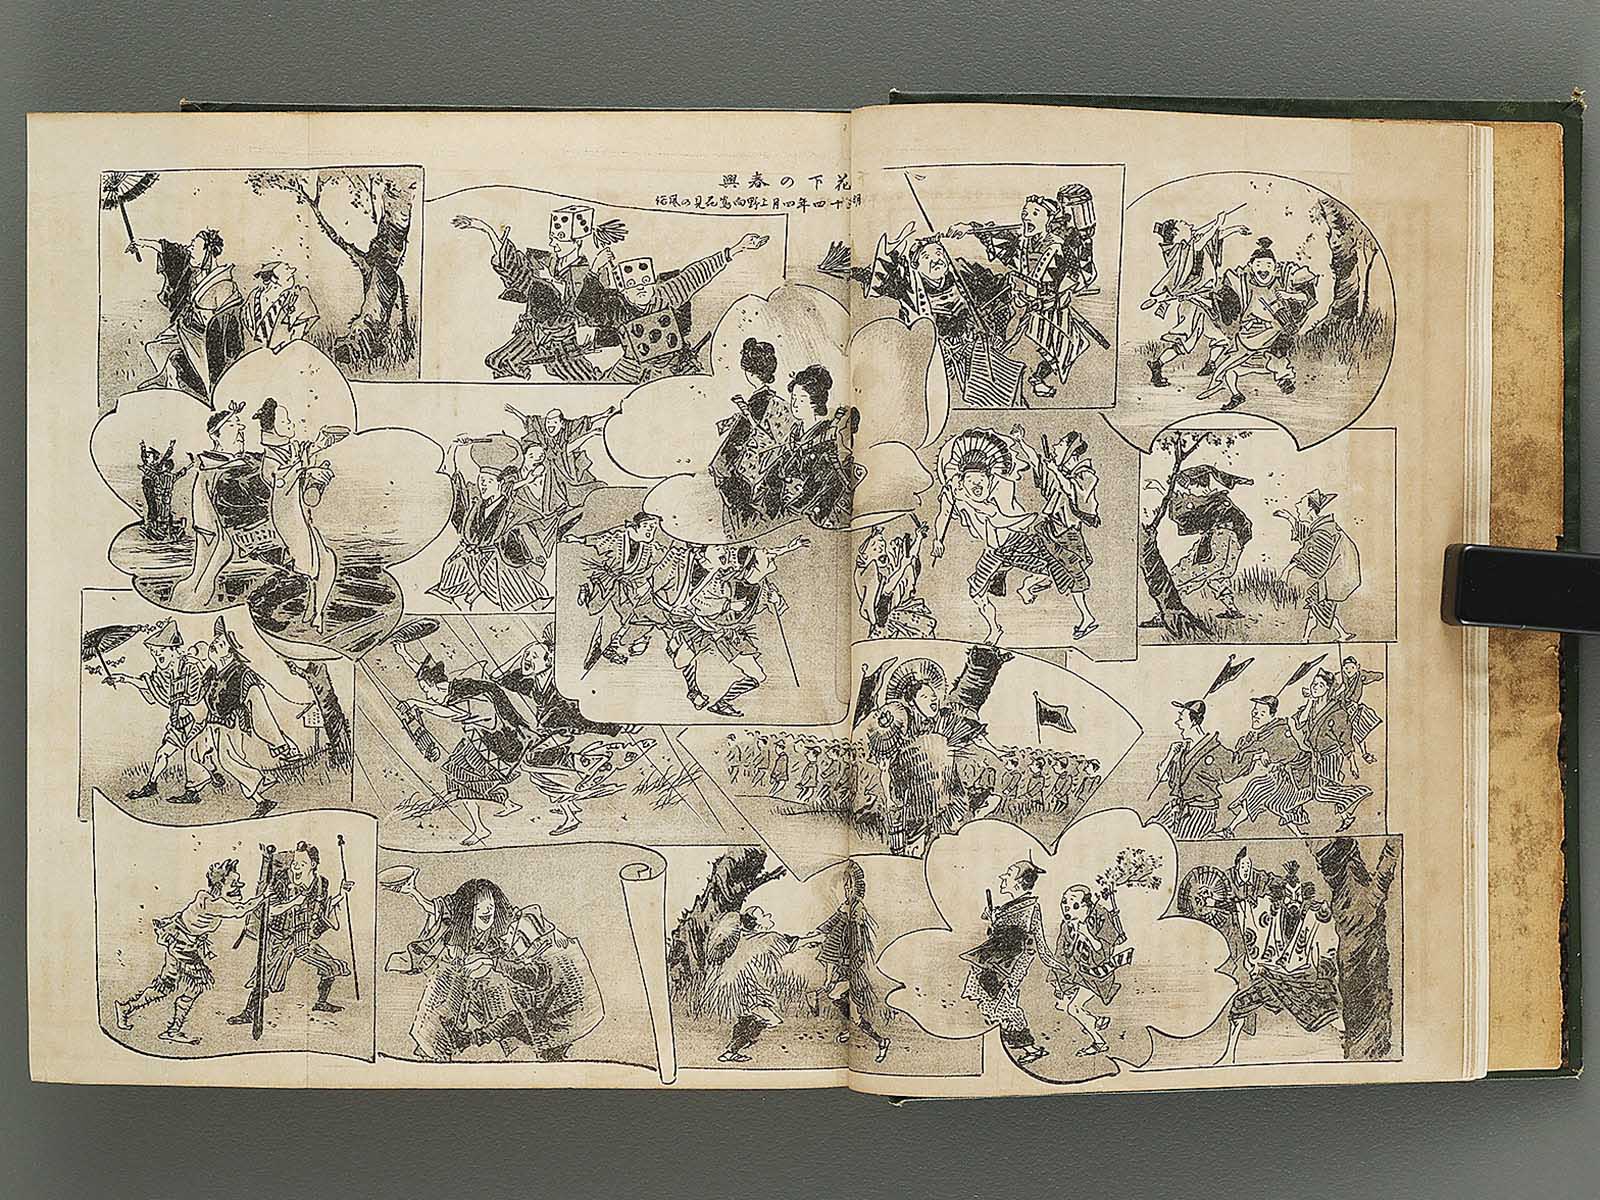 花下の春興
十四年四月上野向嶌花見の風俗